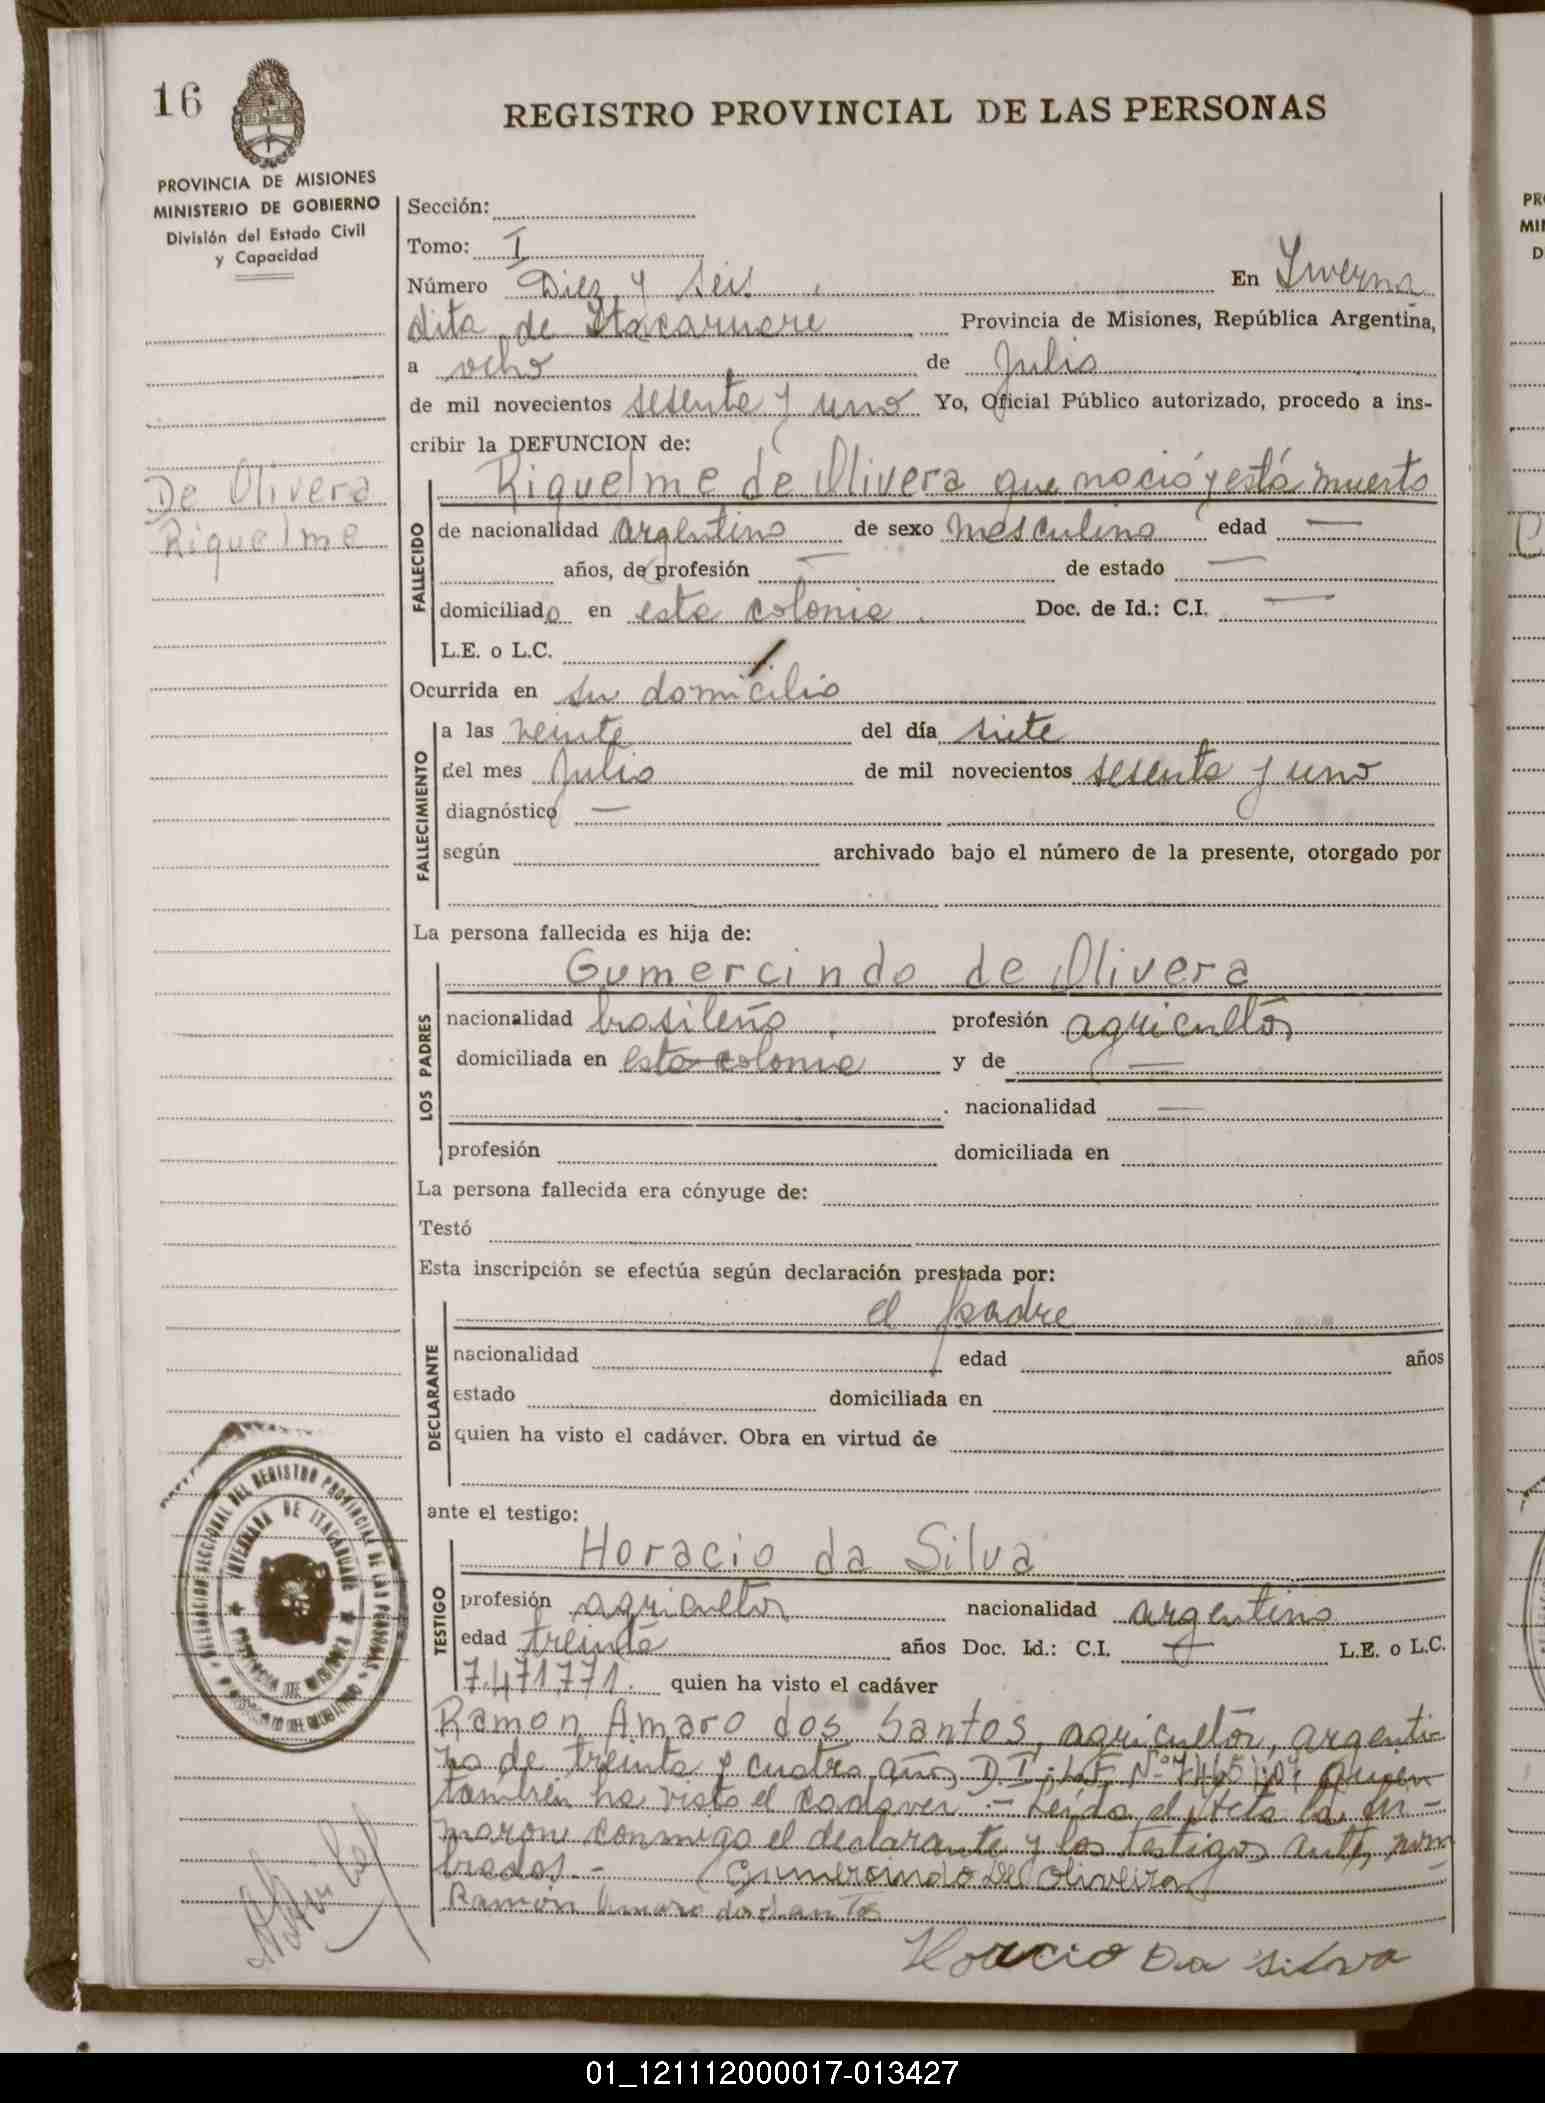 16
REGISTRO PROVINCIAL DE LAS PERSONAS
PROVINCIA DE MISIONES
MINISTERIO DE GOBIERNO
División del Estado Civil
y Capacidad
Sección:
Tomo: I
Número Diez y seis En Inverna
dita de Itacaruare Provincia de Misiones, República Argentina,
a ocho de Julio
de mil novecientos sesenta y uno Yo, Oficial Público autorizado, procedo a ins-
cribir la DEFUNCION de:
De Olivera
Riquelme
FALLECIDO
Riquelme de Olivera que nació y está muerto
de nacionalidad argentino de sexo masculino edad —
años, de profesión — de estado —
domiciliado en esta colonia Doc. de Id.: C.I. —
L.E. o L.C.
Ocurrida en su domicilio
FALLECIMIENTO
a las veinte del día siete
del mes Julio de mil novecientos sesenta y uno
diagnóstico —
según archivado bajo el número de la presente, otorgado por
La persona fallecida es hija de:
LOS PADRES
Gumercindo de Olivera
nacionalidad brasileño profesión agricultor
domiciliada en esta colonia y de —
nacionalidad —
profesión domiciliada en
La persona fallecida era cónyuge de:
Testó
Esta inscripción se efectúa según declaración prestada por:
DECLARANTE
el padre
nacionalidad edad años
estado domiciliada en
quien ha visto el cadáver. Obra en virtud de
ante el testigo:
TESTIGO
Horacio da Silva
profesión agricultor nacionalidad argentino
edad treinta años Doc. Id.: C.I. — L.E. o L.C.
7.471.771. quien ha visto el cadáver
Ramon Amaro dos Santos, agricultor, argenti-
no de treinta y cuatro años D.I. L.E. Nº quien
también ha visto el cadaver.- Leída el Acta la fir-
maron conmigo el declarante y los testigos ante nom
brados.- Gumercindo De Oliveira
Ramón Amaro dos Santos
Horacio Da Silva
DELEGACION SECCIONAL DEL REGISTRO PROVINCIAL DE LAS PERSONAS
INVERNADA DE ITACARUARE
PROVINCIA DE MISIONES
01_121112000017-013427